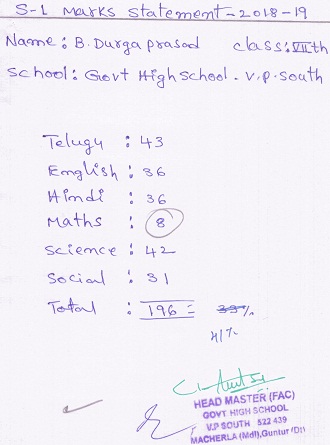 S-1 Marks statement - 2018-19
Name : B. Durga prasad class : VIIth
School : Govt High School. V.P. South
Telugu : 43
English : 36
Hindi : 36
Maths : 8
Science : 42
Social : 31
Total : 196 = 39%
41%
HEAD MASTER (FAC)
GOVT HIGH SCHOOL
V.P SOUTH 522 439
MACHERLA (Mdl),Guntur (Dt)